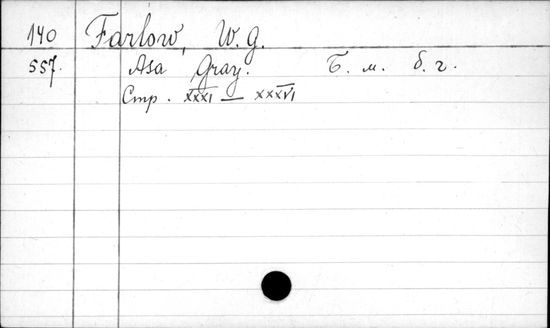 140 Farlow, W. G.
557. Asa Gray. Б. м. б. г.
Стр. XXXI — XXXVI